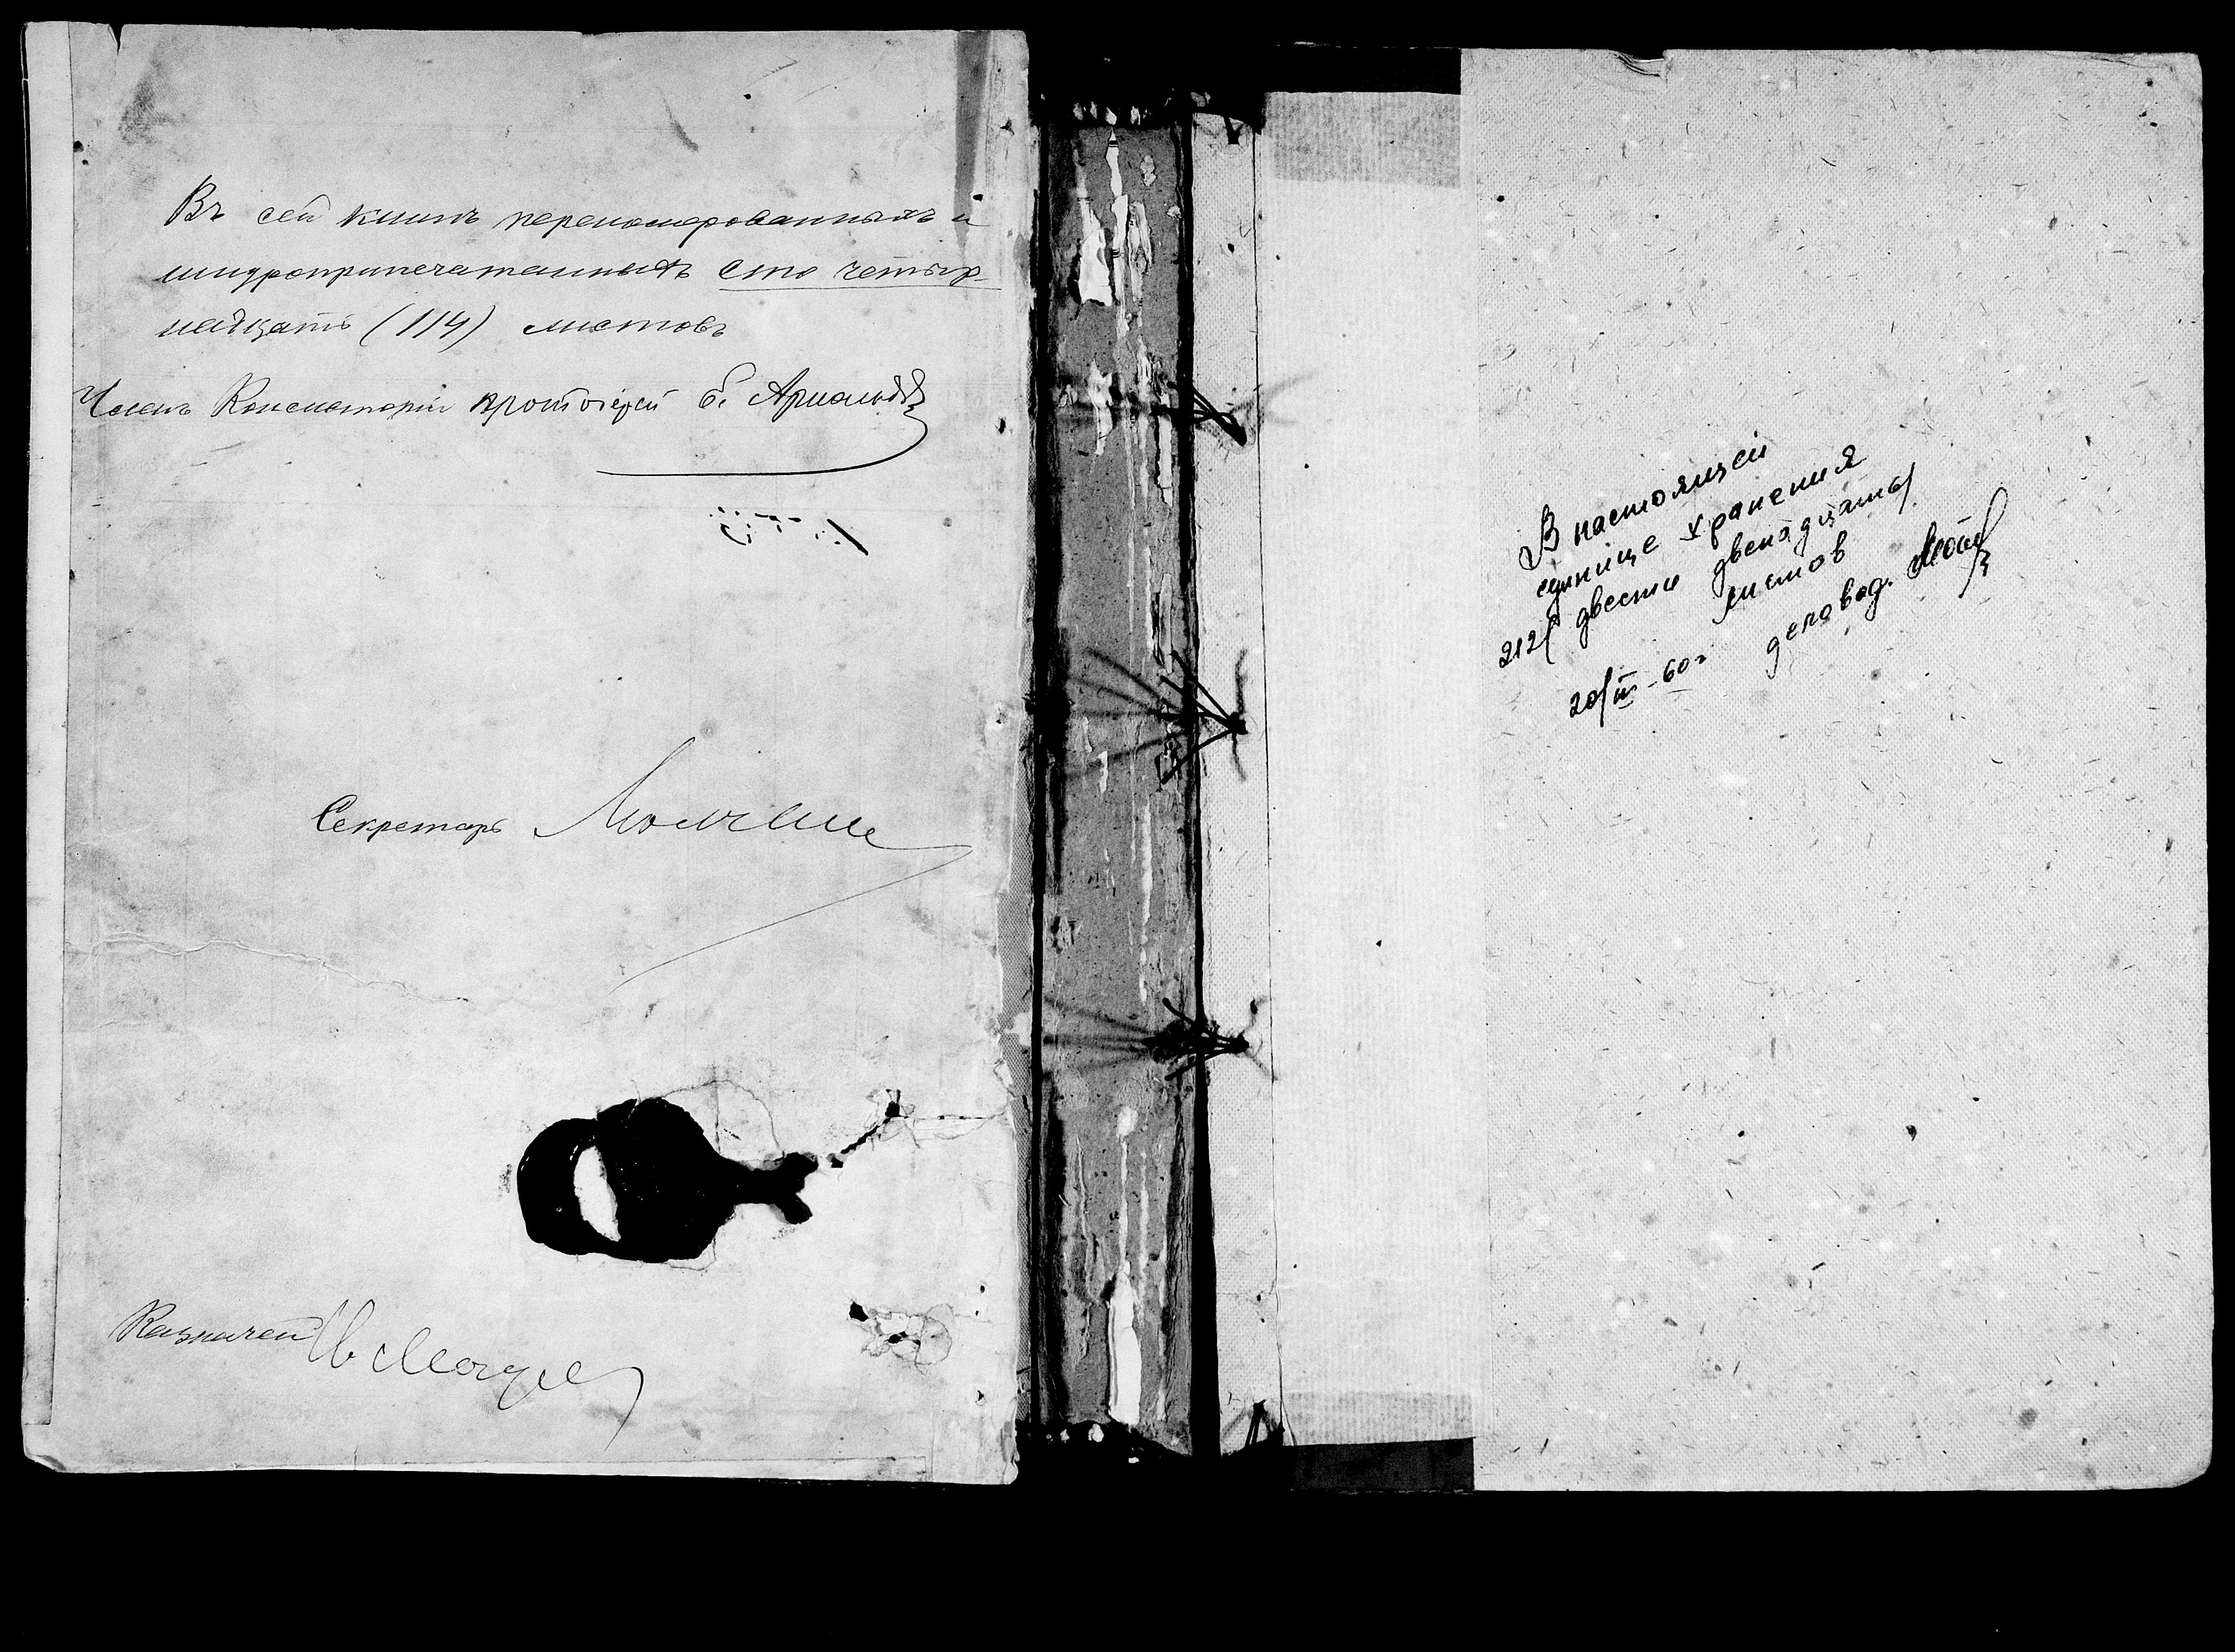 Въ сей книгѣ переномерованныхъ и
шнуроприпечатанныхъ сто четыр-
надцать (114) листовъ
Членъ Консисторіи протоіерей
Секретарь
Казначей
В настоящей
единице хранения
212 (двести двенадцать)
листов
20/III-60 г деловод.